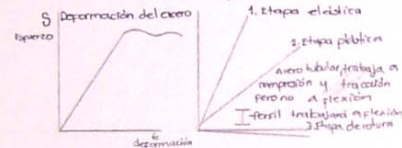 S
Deformación del acero
Esfuerzo
deformación
1. Etapa elástica
2. Etapa plástica
Acero tubular, trabaja a
compresión y tracción
pero no a flexión
I perfil trabajará a flexión
3. Etapa de rotura